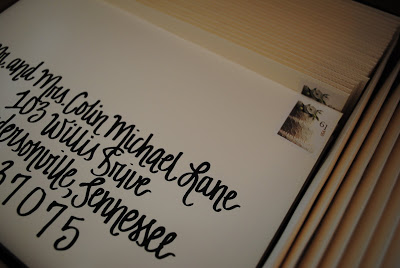 Mr. and Mrs. Colin Michael Lane
103 Willis Drive
dersonville, Tennessee
37075